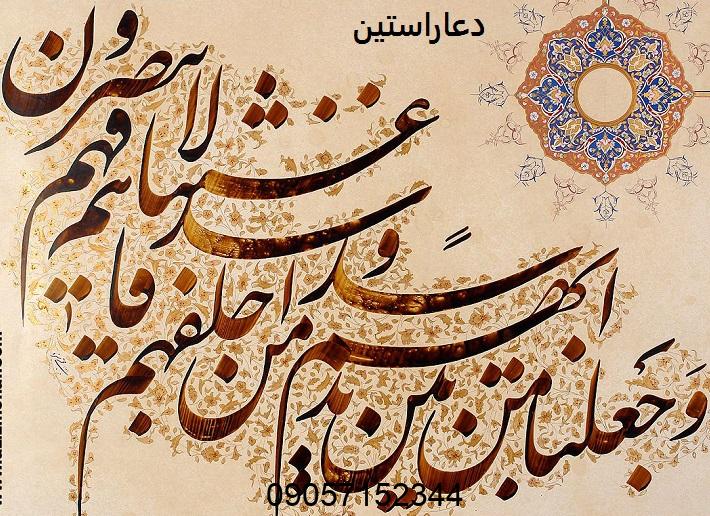 دعاراستین
وَجَعلنا من بین ایدیهم سداً
ومن خلفهم سداً
فاغشیناهم فهم لا یبصرون
09057152344